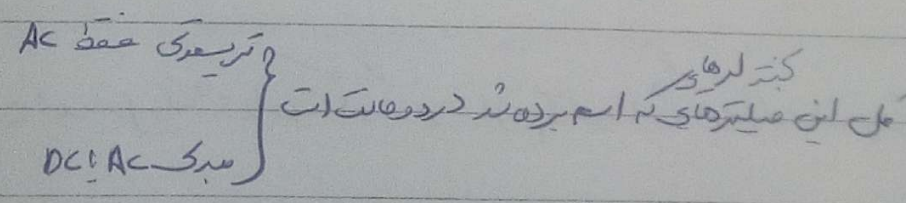 کنترلرهای
کل این فیلترهای که اسم برده شد در دو حالت است
تریستوری فقط AC
مبدل AC یا DC